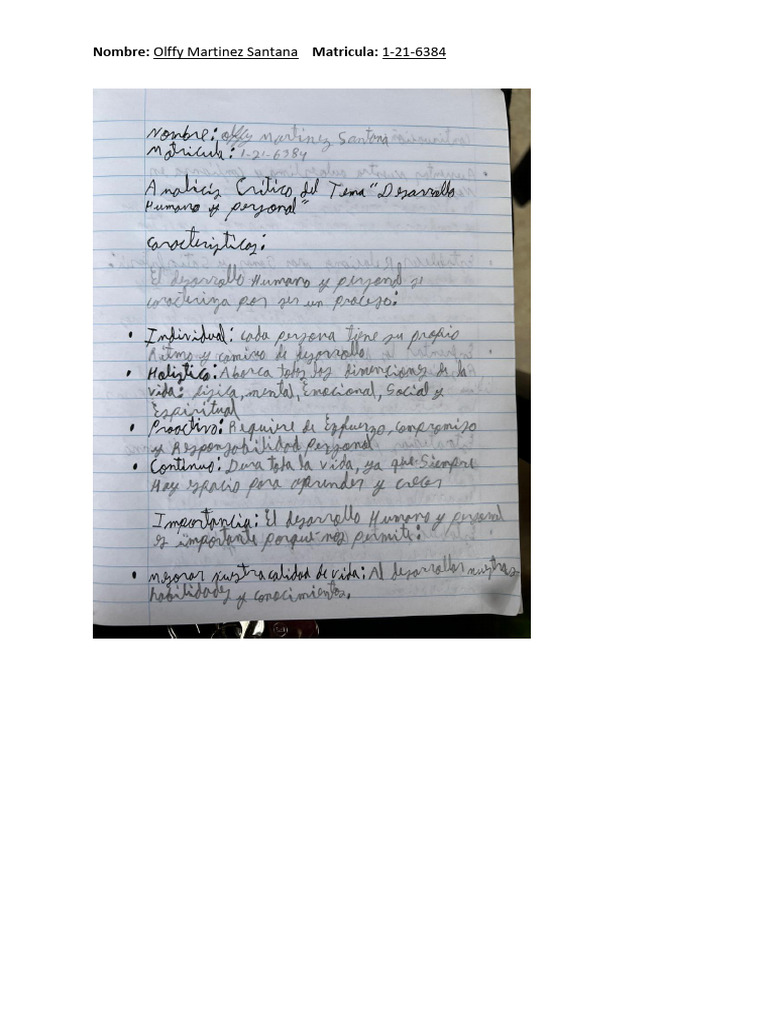 Nombre: Olffy Martinez Santana Matricula: 1-21-6384
Nombre: Olffy Martinez Santana
Matricula: 1-21-6384
Analicis Critico del Tema "Desarrollo
Humano y personal"
Caracteristicas:
El desarrollo Humano y personal se
caracteriza por ser un proceso:
• Individual: cada persona tiene su propio
Ritmo y camino de desarrollo
• Holistico: Abarca todas las dimenciones de la
vida: fisica, mental, Emocional, Social y
Espiritual
• Proactivo: Requiere de Esfuerzo, compromiso
y Responsabilidad Personal
• Continuo: Dura toda la vida, ya que Siempre
Hay espacio para aprender y crecer
Importancia: El desarrollo Humano y personal
es importante porque nos permite:
• mejorar nuestra calidad de vida: Al desarrollar nuestras
habilidades y conocimientos.